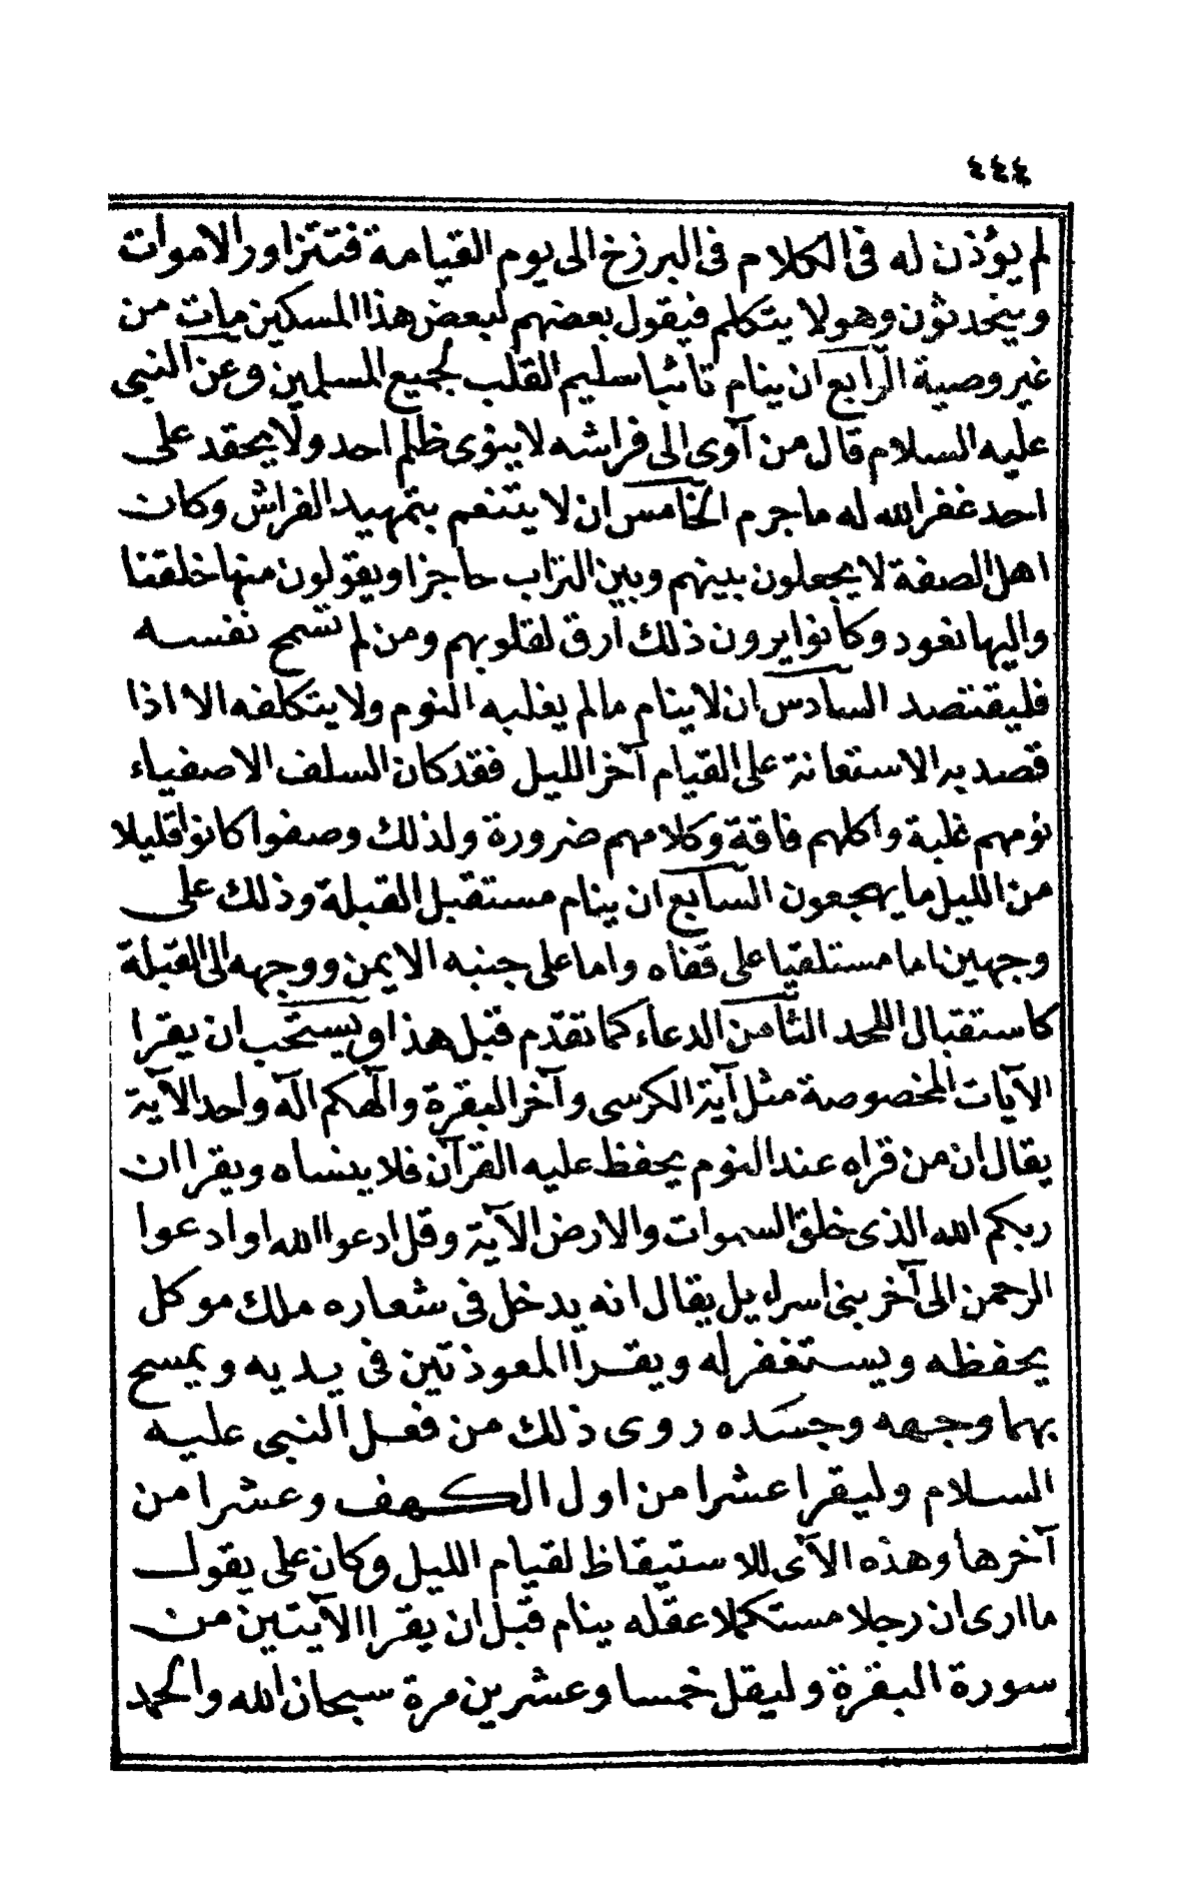 ٤٤٤
لم يؤذن له فى الكلام فى البرزخ الى يوم القيامة فتتزاور الاموات
ويتحدثون وهو لا يتكلم فيقول بعضهم لبعض هذا المسكين مات من
غير وصية الرابع ان ينام تائبا سليم القلب لجميع المسلمين وعن النبى
عليه السلام قال من آوى الى فراشه لا ينوى ظلم احد ولا يحقد على
احد غفر الله له ما جرم الخامس ان لا يتنعم بتمهيد الفراش وكان
اهل الصفة لا يجعلون بينهم وبين التراب حاجزا ويقولون منها خلقنا
واليها نعود وكانوا يرون ذلك ارق لقلوبهم ومن لم تسمح نفسه
فليقتصد السادس ان لا ينام ما لم يغلبه النوم ولا يتكلفه الا اذا
قصد به الاستعانة على القيام آخر الليل فقد كان السلف الاصفياء
نومهم غلبة واكلهم فاقة وكلامهم ضرورة ولذلك وصفوا كانوا قليلا
من الليل ما يهجعون السابع ان ينام مستقبل القبلة وذلك على
وجهين اما مستلقيا على قفاه واما على جنبه الايمن ووجهه الى القبلة
كاستقبال اللحد الثامن الدعاء كما تقدم قبل هذا او يستحب ان يقرا
الآيات المخصوصة مثل آية الكرسى وآخر البقرة والٓهكم الٓه واحد الآية
يقال ان من قراه عند النوم يحفظ عليه القرآن فلا ينساه ويقرا ان
ربكم الله الذى خلق السموات والارض الآية وقل ادعوا الله او ادعوا
الرحمن الى آخر بنى اسراءيل يقال انه يدخل فى شعاره ملك موكل
يحفظه ويستغفر له ويقرا المعوذتين فى يديه ويمسح
بهما وجهه وجسَده روى ذلك من فعل النبى عليه
السلام وليقرا عشرا من اول الكهف وعشرا من
آخرها وهذه الآى للاستيقاظ لقيام الليل وكان على يقول
ما ارى ان رجلا مستكملا عقله ينام قبل ان يقرا الآيتين من
سورة البقرة وليقل خمسا وعشرين مرة سبحان الله والحمد